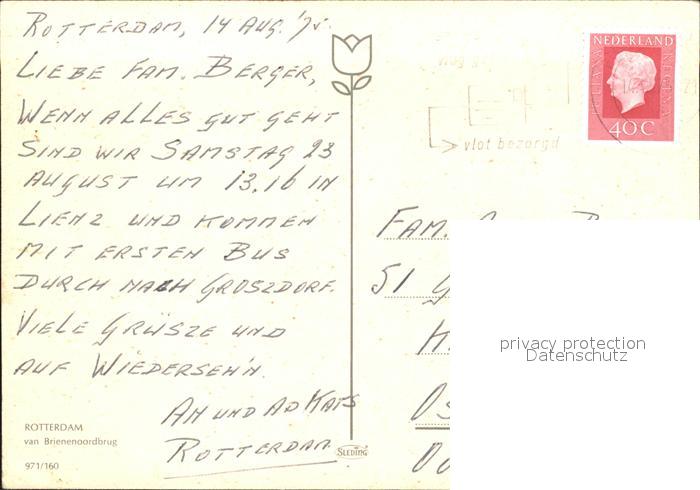 ROTTERDAM, 14 AUG. '75.
LIEBE FAM. BERGER,
WENN ALLES GUT GEHT
SIND WIR SAMSTAG 23
AUGUST UM 13.16 IN
LIENZ UND KOMMEN
MIT ERSTEN BUS
DURCH NACH GROSZDORF.
VIELE GRÜSZE UND
AUF WIEDERSEH'N.
AN UND AD KATS
ROTTERDAM.
ROTTERDAM
van Brienenoordbrug
971/160
SLEDING
NEDERLAND
JULIANA REGINA
40 C
vlot bezorgd
FAM.
51
privacy protection
Datenschutz